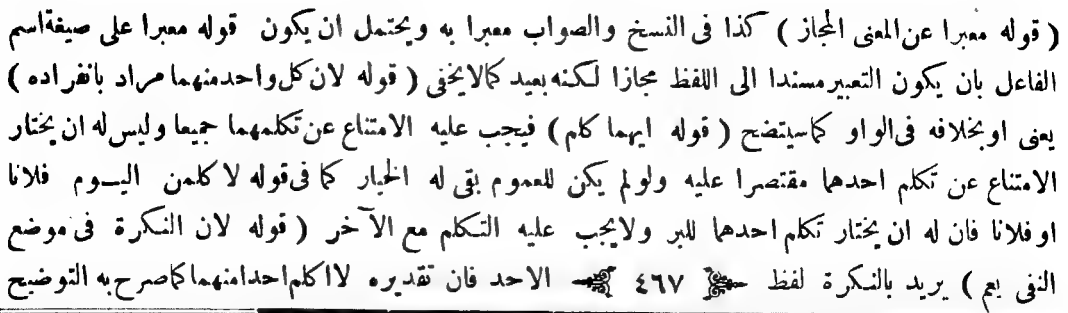 ( قوله معبرا عن المعنى المجاز ) كذا فى النسخ والصواب معبرا به ويحتمل ان يكون قوله معبرا على صيغة اسم
الفاعل بان يكون التعبير مسندا الى اللفظ مجازا لكنه بعيد كما لا يخفى ( قوله لان كل واحد منهما مراد بانفراده )
يعنى او بخلافه فى الواو كما سيتضح ( قوله ايهما كلم ) فيجب عليه الامتناع عن تكلمهما جميعا وليس له ان يختار
الامتناع عن تكلم احدهما مقتصرا عليه ولو لم يكن للعموم بقى له الخيار كما فى قوله لا كلمن اليوم فلانا
او فلانا فان له ان يختار تكلم احدهما للبر ولا يجب عليه التكلم مع الآخر ( قوله لان النكرة فى موضع
النفى يعم ) يريد بالنكرة لفظ ﴿ ٤٦٧ ﴾ الاحد فان تقديره لا اكلم احدا منهما كما صرح به التوضيح